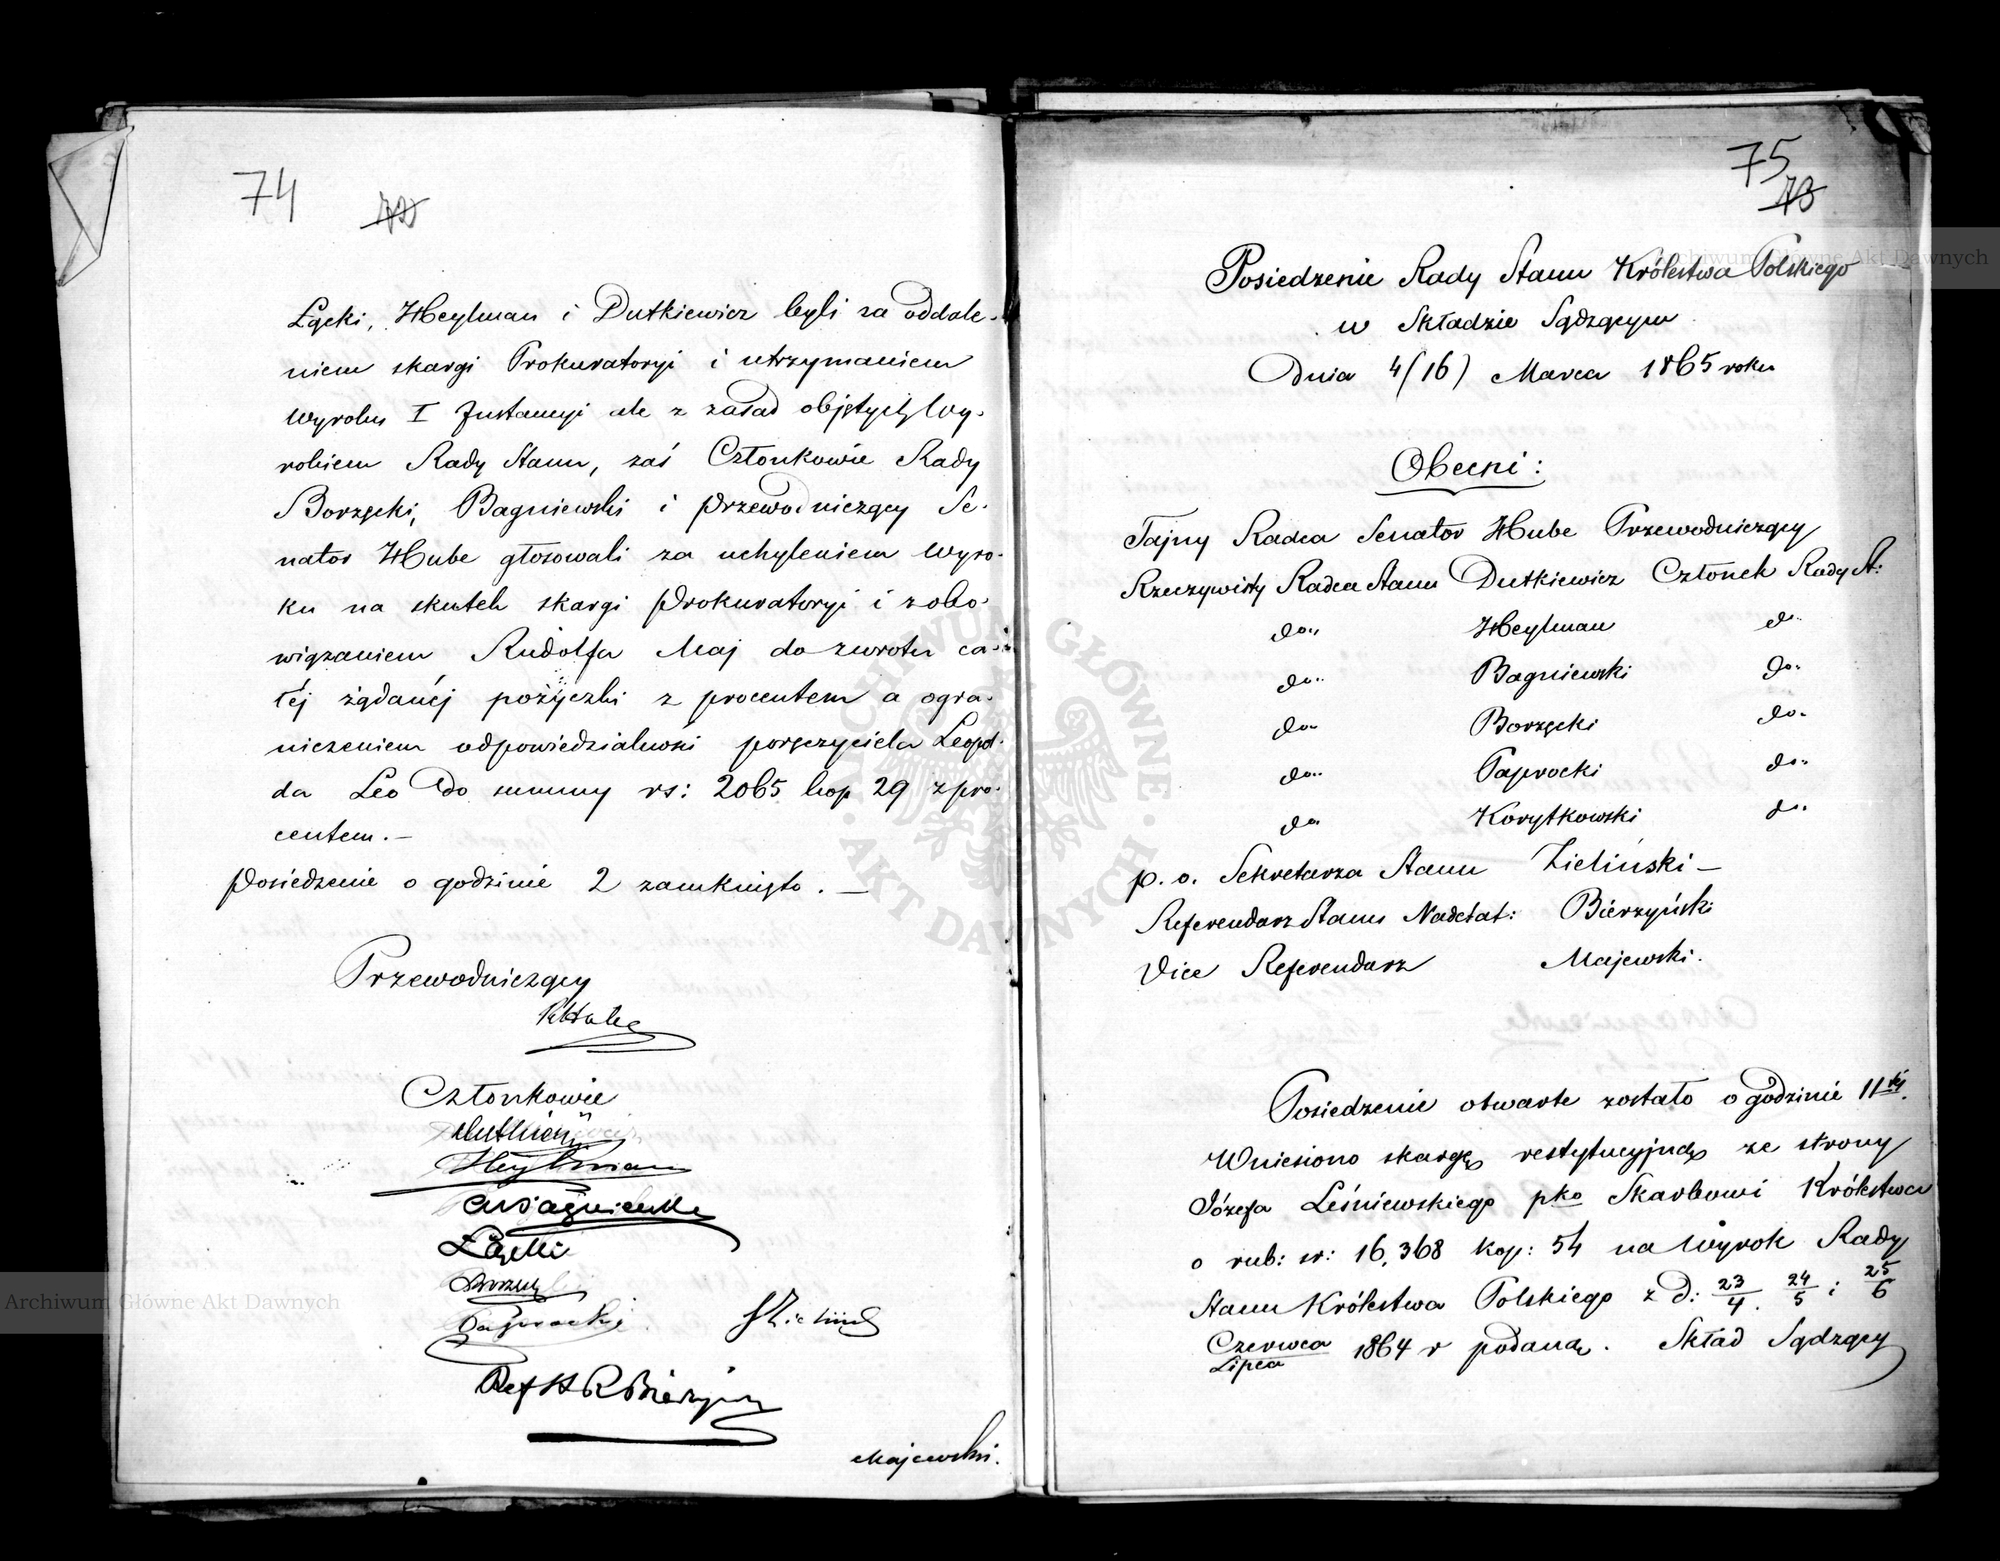 74
72
Łącki, Heylman i Dutkiewicz byli za oddale-
niem skargi Prokuratoryi i utrzymaniem
Wyroku I Instancyi ale z zasad objętych Wy-
rokiem Rady Stanu, zaś Członkowie Rady
Borzęcki, Bagniewski i Przewodniczący Se-
nator Hube głosowali za uchyleniem Wyro-
ku na skutek skargi Prokuratoryi i zobo-
wiązaniem Rudolfa Maj do zwrotu ca-
łéj żądanéj pożyczki z procentem a ogra-
niczeniem odpowiedzialności poręczyciela Leopol-
da Leo do summy rs: 2065 kop 29 z pro-
centem. –
Posiedzenie o godzinie 2 zamknięto. –
Przewodniczący
RHube
Członkowie
Dutkiewicz
Heylman
Bagniewski
Łącki
Borzęcki
Paprocki
JZieliński
Ref St R Bierzyński
Majewski.
75
73
Posiedzenie Rady Stanu Królestwa Polskiego
w Składzie Sądzącym
Dnia 4/16) Marca 1865 roku
Obecni:
Tajny Radca Senator Hube Przewodniczący
Rzeczywisty Radca Stanu Dutkiewicz Członek Rady St:
do.. Heylman do..
do.. Bagniewski do..
do.. Borzęcki do..
do.. Paprocki do..
do.. Korytkowski do..
p. o. Sekretarza Stanu Zieliński –
Referendarz Stanu Nadetat: Bierzyński
Vice Referendarz Majewski.
Posiedzenie otwarte zostało o godzinie 11téj.
Wniesiono skargę restytucyjną ze strony
Józefa Leśniewskiego pko Skarbowi Królestwa
o rub: sr: 16,368 kop: 54 na Wyrok Rady
Stanu Królestwa Polskiego z d: 23/4. 24/5 i 25/6
Czerwca/Lipca 1864 r podaną. Skład Sądzący
Archiwum Główne Akt Dawnych
Archiwum Główne Akt Dawnych
ARCHIWUM GŁÓWNE · AKT DAWNYCH ·